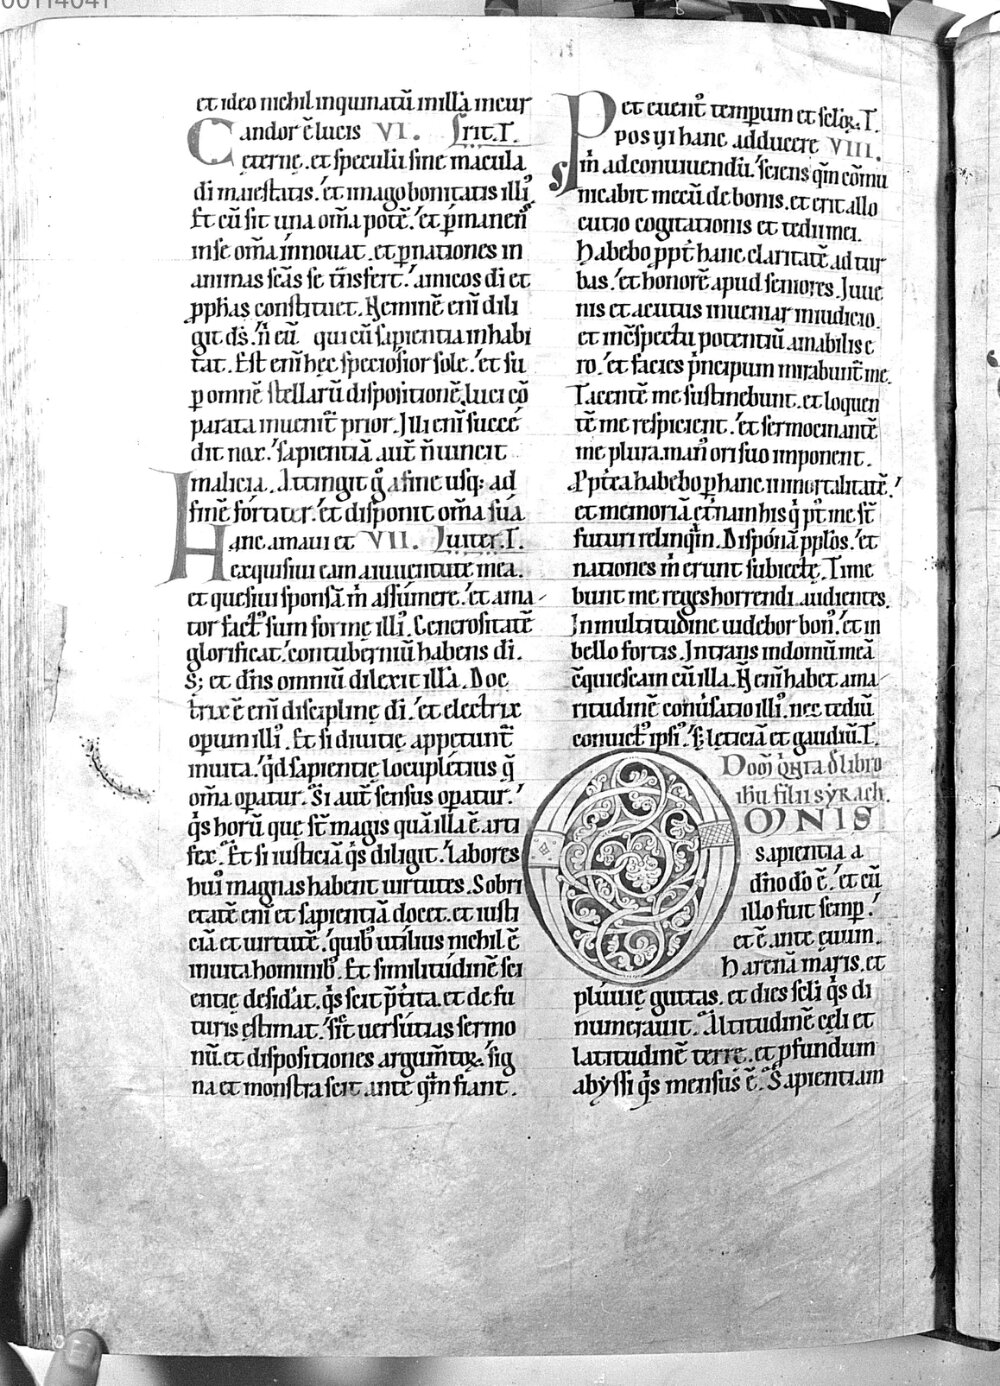 00114041
et ideo nichil inquinatũ in illã incur
Candor ẽ lucis VI. rit. T.
ęternę. et speculũ sine macula
di maiestatis. et imago bonitatis illiꝰ
Et cũ sit una om̃a potẽ. et ꝑmanen̄
in se om̃a innouat. et ꝑ nationes in
animas sc̃as se t̃nsfert. amicos di et
ꝓphãs constituet. Neminẽ eni᷒ dili
git ds̃. n̄ eũ qui cũ sapientia inhabi
tat. Est eni᷒ hęc speciosior sole. et su
ꝑ omnẽ stellarũ dispositionẽ. luci cõ
parata inuenit᷑ prior. Illi eni᷒ succe
dit nox. sapientiã aut̃ n̄ uincit
malicia. Attingit g̊ a fine usq; ad
finẽ fortiter. et disponit om̃a suã
Hanc amaui et VII. uiter. T.
exquisiui eam a iuuentute mea.
et quesiui sponsã m̃ assumere. et ama
tor factꝰ sum formę illiꝰ. Generositatẽ
glorificat. contuberniũ habens di.
S; et dñs omniũ dilexit illã. Doc
trix ẽ eni᷒ disciplinę di. et electrix
operum illiꝰ. Et si diuitię appetunt᷑
in uita. qd̃ sapientię locupletius q̃
om̃a oꝑatur. Si aut̃ sensus oꝑatur.
q̃s horũ quę st̃ magis quã illa ẽ arti
fex. Et si iusticiã q̃s diligit. labores
huiꝰ magnas habent uirtutes. Sobri
etatẽ eni᷒ et sapientiã docet. et iusti
ciã et uirtutẽ. quibꝰ utilius nichil ẽ
in uita hominibꝰ. Et similitudinẽ sci
entię desid̃at. q̃s scit p̃t̃ita. et de fu
turis ęstimat. scit uersutias sermo
nũ. et dispositiones argum̃toꝝ. sig
na et monstra scit. ante q̃m fiant.
Et euent᷑ tempum et seclo̧ꝝ. T.
Proposui hanc adducere VIII.
m̃ ad conuiuendũ. sciens q̃m cõmu
nicabit mecũ de bonis. et erit allo
cutio cogitationis et tedii mei.
Habebo ꝓpt̃ hanc claritatẽ ad tur
bas. et honorẽ apud seniores. Iuue
nis et acutus inueniar in iudicio.
et in cspectu potentiũ amabilis e
ro. et facies p̃ncipum mirabunt᷑ me.
Tacentẽ me sustinebunt. et loquen
tẽ me respicient. et sermocinantẽ
me plura. manꝰ ori suo imponent.
P̃pt̃ea habebo ꝑ hanc inmortalitatẽ.
et memoriã ęt̃nam his q̃ pt̃ me st̃
futuri relinq̃m. Disponã pp̃los. et
nationes m̃ erunt subiectę. Time
bunt me reges horrendi audientes.
In multitudine uidebor bonꝰ. et in
bello fortis. Intrans in domũ meã
c̃quiescam cũ illa. N̄ eni᷒ habet ama
ritudinẽ conũsatio illiꝰ. nec tediũ
conuictꝰ ipsiꝰ. s; lęticiã et gaudiũ. T.
Dom̃ q̃nta d̃ libro
ih̃u filii syrach.
OMNIS
sapientia a
dño dõ ẽ. et cũ
illo fuit semꝑ.
et ẽ ante ęuum.
harenã maris. et
pluuię guttas. et dies seli q̃s di
numerauit. Altitudinẽ cęli et
latitudinẽ terrę. et ꝓfundum
abyssi q̃s mensus ẽ. Sapientiam